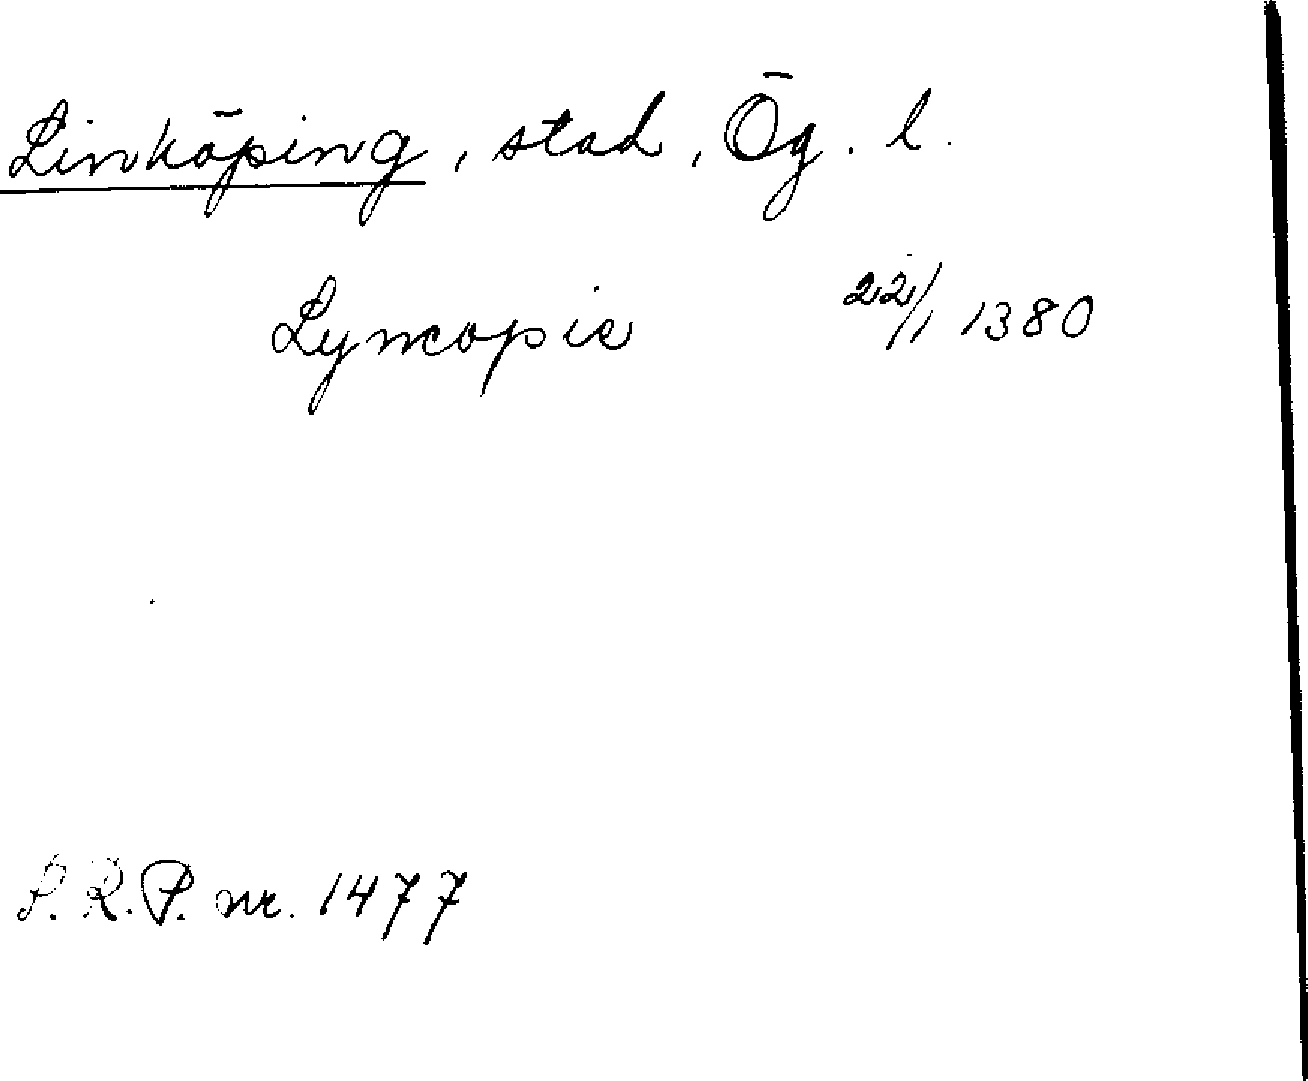 Linköping, stad, Ög. l.
Lyncopie 22/1 1380
S.R.P. nr. 1477